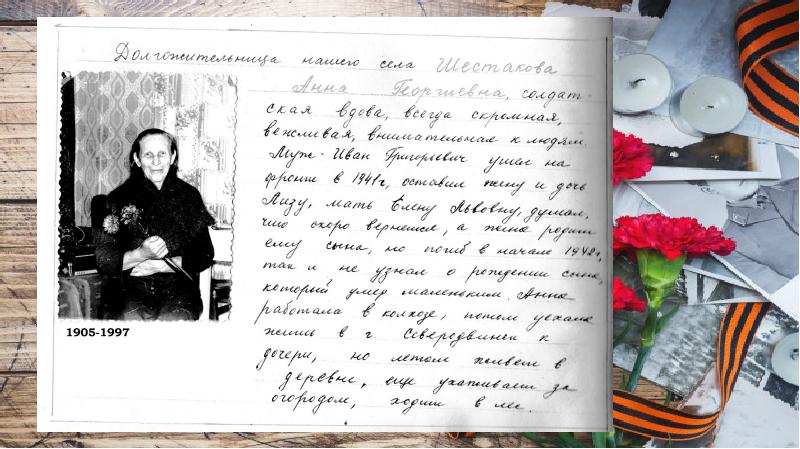 Долгожительница нашего села Шестакова
Анна Георгиевна, солдат-
ская вдова, всегда скромная,
вежливая, внимательная к людям.
Муж - Иван Григорьевич ушёл на
фронт в 1941г, оставил жену и дочь
Лизу, мать Елену Львовну, думал,
что скоро вернется, а жена родит
ему сына, но погиб в начале 1942г,
так и не узнал о рождении сына,
который умер маленьким. Анна
работала в колхозе, потом уехала
жить в г. Северодвинск к
дочери, но летом живет в
деревне, еще ухаживает за
огородом, ходит в лес.
1905-1997